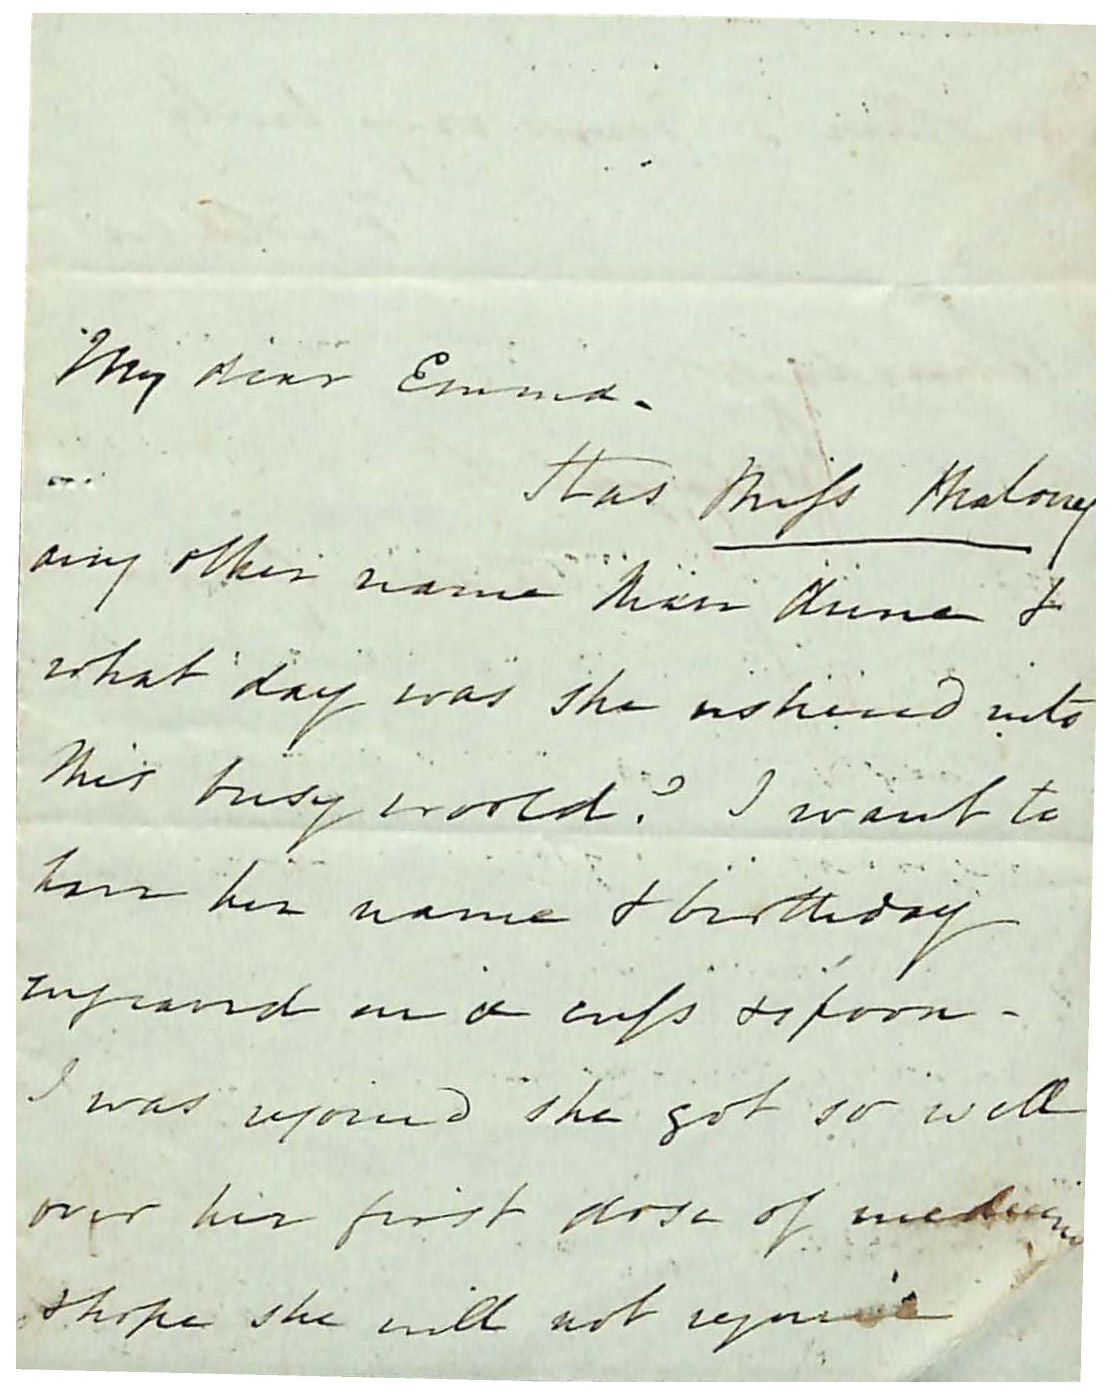 My dear Emma.
Has Miss Maloney
any other name than Anna &
what day was she ushered into
this busy world? I want to
have her name & birthday
engraved on a cup & spoon -
I was rejoiced she got so well
over her first dose of medicine
& hope she will not require